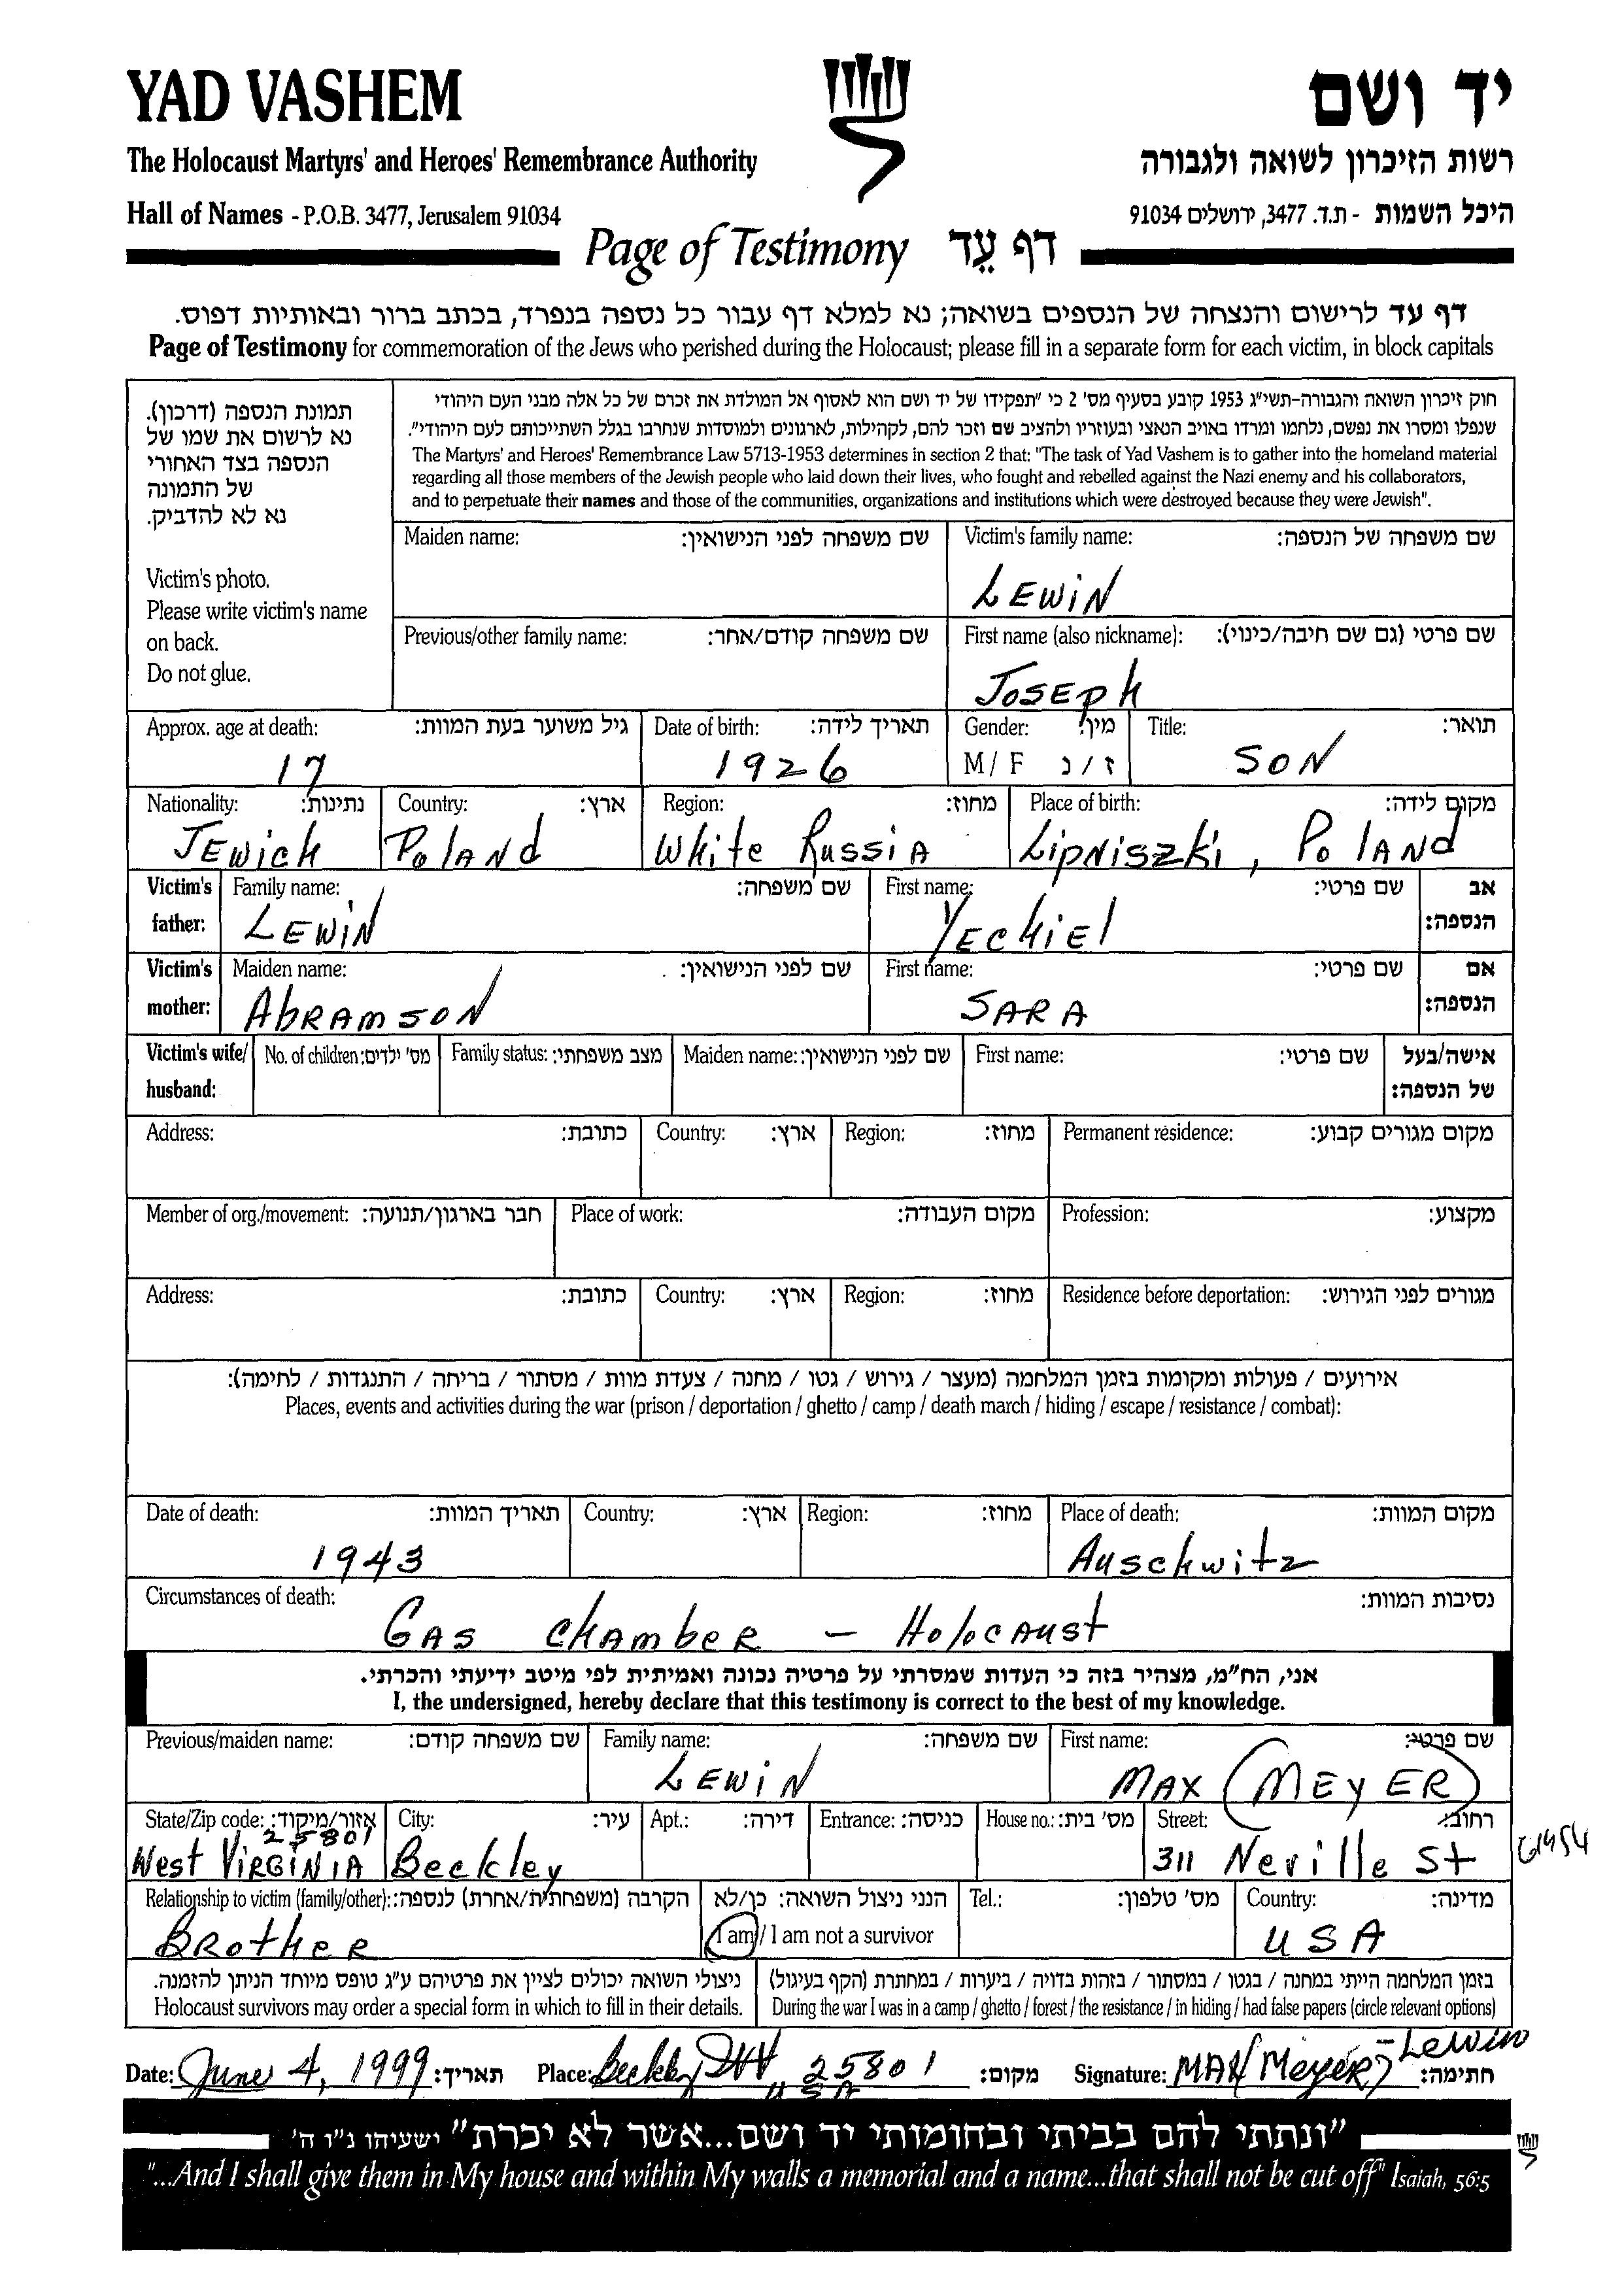 YAD VASHEM
יד ושם
The Holocaust Martyrs' and Heroes' Remembrance Authority
רשות הזיכרון לשואה ולגבורה
Hall of Names - P.O.B. 3477, Jerusalem 91034
היכל השמות - ת.ד. 3477, ירושלים 91034
Page of Testimony דף עֵד
דף עד לרישום והנצחה של הנספים בשואה; נא למלא דף עבור כל נספה בנפרד, בכתב ברור ובאותיות דפוס.
Page of Testimony for commemoration of the Jews who perished during the Holocaust; please fill in a separate form for each victim, in block capitals
תמונת הנספה (דרכון).
נא לרשום את שמו של
הנספה בצד האחורי
של התמונה
נא לא להדביק.
Victim's photo.
Please write victim's name
on back.
Do not glue.
חוק זיכרון השואה והגבורה-תשי"ג 1953 קובע בסעיף מס' 2 כי "תפקידו של יד ושם הוא לאסוף אל המולדת את זכרם של כל אלה מבני העם היהודי
שנפלו ומסרו את נפשם, נלחמו ומרדו באויב הנאצי ובעוזריו ולהציב שם וזכר להם, לקהילות, לארגונים ולמוסדות שנחרבו בגלל השתייכותם לעם היהודי".
The Martyrs' and Heroes' Remembrance Law 5713-1953 determines in section 2 that: "The task of Yad Vashem is to gather into the homeland material
regarding all those members of the Jewish people who laid down their lives, who fought and rebelled against the Nazi enemy and his collaborators,
and to perpetuate their names and those of the communities, organizations and institutions which were destroyed because they were Jewish".
Maiden name: שם משפחה לפני הנישואין:
Victim's family name: שם משפחה של הנספה:
LEWIN
Previous/other family name: שם משפחה קודם/אחר:
First name (also nickname): שם פרטי (גם שם חיבה/כינוי):
JOSEPH
Approx. age at death: גיל משוער בעת המוות:
17
Date of birth: תאריך לידה:
1926
Gender: מין:
M / F ז / נ
Title: תואר:
SON
Nationality: נתינות:
JEwich
Country: ארץ:
PoLAND
Region: מחוז:
White RussiA
Place of birth: מקום לידה:
LipNiszki, PolANd
Victim's father:
Family name: שם משפחה:
LEWIN
First name: שם פרטי:
YEChiEl
אב הנספה:
Victim's mother:
Maiden name: שם לפני הנישואין:
AbRAMSON
First name: שם פרטי:
SARA
אם הנספה:
Victim's wife/ husband:
No. of children: מס' ילדים:
Family status: מצב משפחתי:
Maiden name: שם לפני הנישואין:
First name: שם פרטי:
אישה/בעל של הנספה:
Address: כתובת:
Country: ארץ:
Region: מחוז:
Permanent residence: מקום מגורים קבוע:
Member of org./movement: חבר בארגון/תנועה:
Place of work: מקום העבודה:
Profession: מקצוע:
Address: כתובת:
Country: ארץ:
Region: מחוז:
Residence before deportation: מגורים לפני הגירוש:
אירועים / פעולות ומקומות בזמן המלחמה (מעצר / גירוש / גטו / מחנה / צעדת מוות / מסתור / בריחה / התנגדות / לחימה):
Places, events and activities during the war (prison / deportation / ghetto / camp / death march / hiding / escape / resistance / combat):
Date of death: תאריך המוות:
1943
Country: ארץ:
Region: מחוז:
Place of death: מקום המוות:
Auschwitz
Circumstances of death: נסיבות המוות:
GAS chAmbER - HoloCAust
אני, הח"מ, מצהיר בזה כי העדות שמסרתי על פרטיה נכונה ואמיתית לפי מיטב ידיעתי והכרתי.
I, the undersigned, hereby declare that this testimony is correct to the best of my knowledge.
Previous/maiden name: שם משפחה קודם:
Family name: שם משפחה:
LEWiN
First name: שם פרטי:
MAX (MEYER)
State/Zip code: אזור/מיקוד:
25801
West VIRGINIA
City: עיר:
Beckley
Apt.: דירה:
Entrance: כניסה:
House no.: מס' בית:
Street: רחוב:
311 Neville St
Relationship to victim (family/other): הקרבה (משפחתית/אחרת) לנספה:
BRothER
הנני ניצול השואה: כן/לא
I am / I am not a survivor
Tel.: מס' טלפון:
Country: מדינה:
USA
ניצולי השואה יכולים לציין את פרטיהם ע"ג טופס מיוחד הניתן להזמנה.
Holocaust survivors may order a special form in which to fill in their details.
בזמן המלחמה הייתי במחנה / בגטו / במסתור / בזהות בדויה / ביערות / במחתרת (הקף בעיגול)
During the war I was in a camp / ghetto / forest / the resistance / in hiding / had false papers (circle relevant options)
Date: June 4, 1999 תאריך:
Place: Beckley WV 25801 מקום:
USA
Signature: MAX (Meyer) - Lewin חתימה:
"ונתתי להם בביתי ובחומותי יד ושם...אשר לא יכרת" ישעיהו נ"ו ה'
"...And I shall give them in My house and within My walls a memorial and a name...that shall not be cut off" Isaiah, 56:5